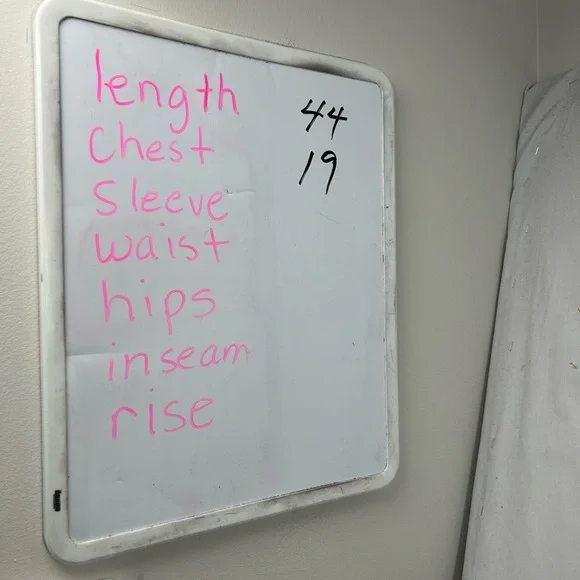 length 44
Chest 19
Sleeve
waist
hips
inseam
rise